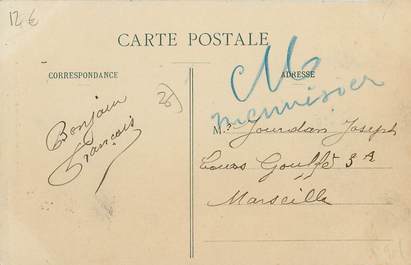 12 €
CARTE POSTALE
CORRESPONDANCE
ADRESSE
menuisier
28
Bonjour
François
Mr Jourdan Joseph
Cours Gouffé 3A
Marseille